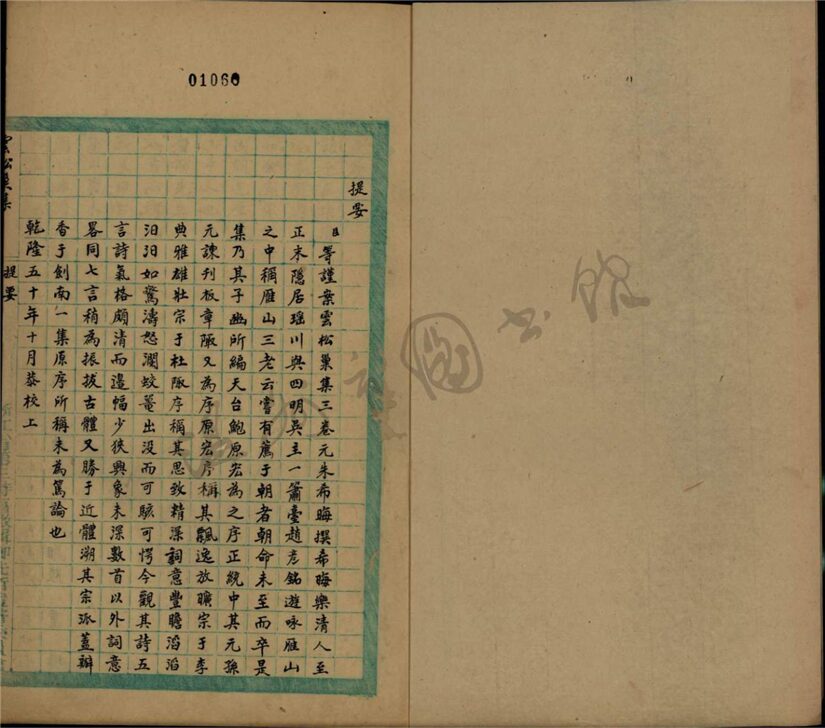 01060
提要
臣等謹案雲松巢集三卷元朱希晦撰希晦樂清人至
正末隱居瑶川與四明吳主一簫臺趙彦銘遊咏雁山
之中稱雁山三老云嘗有薦于朝者朝命未至而卒是
集乃其子幽所編天台鮑原宏為之序正統中其元孫
元諫刊板章陬又為序原宏序稱其飄逸放曠宗于李
典雅雄壯宗于杜陬序稱其思致精深詞意豐贍滔滔
汨汨如驚濤怒瀾蛟鼉出没而可駭可愕今觀其詩五
言詩氣格頗清而邉幅少狹興象未深數首以外詞意
畧同七言稍為振拔古體又勝于近體溯其宗派蓋瓣
香于劍南一集原序所稱未為篤論也
乾隆五十年十月恭校上
雲松巢集
提要
圖書館